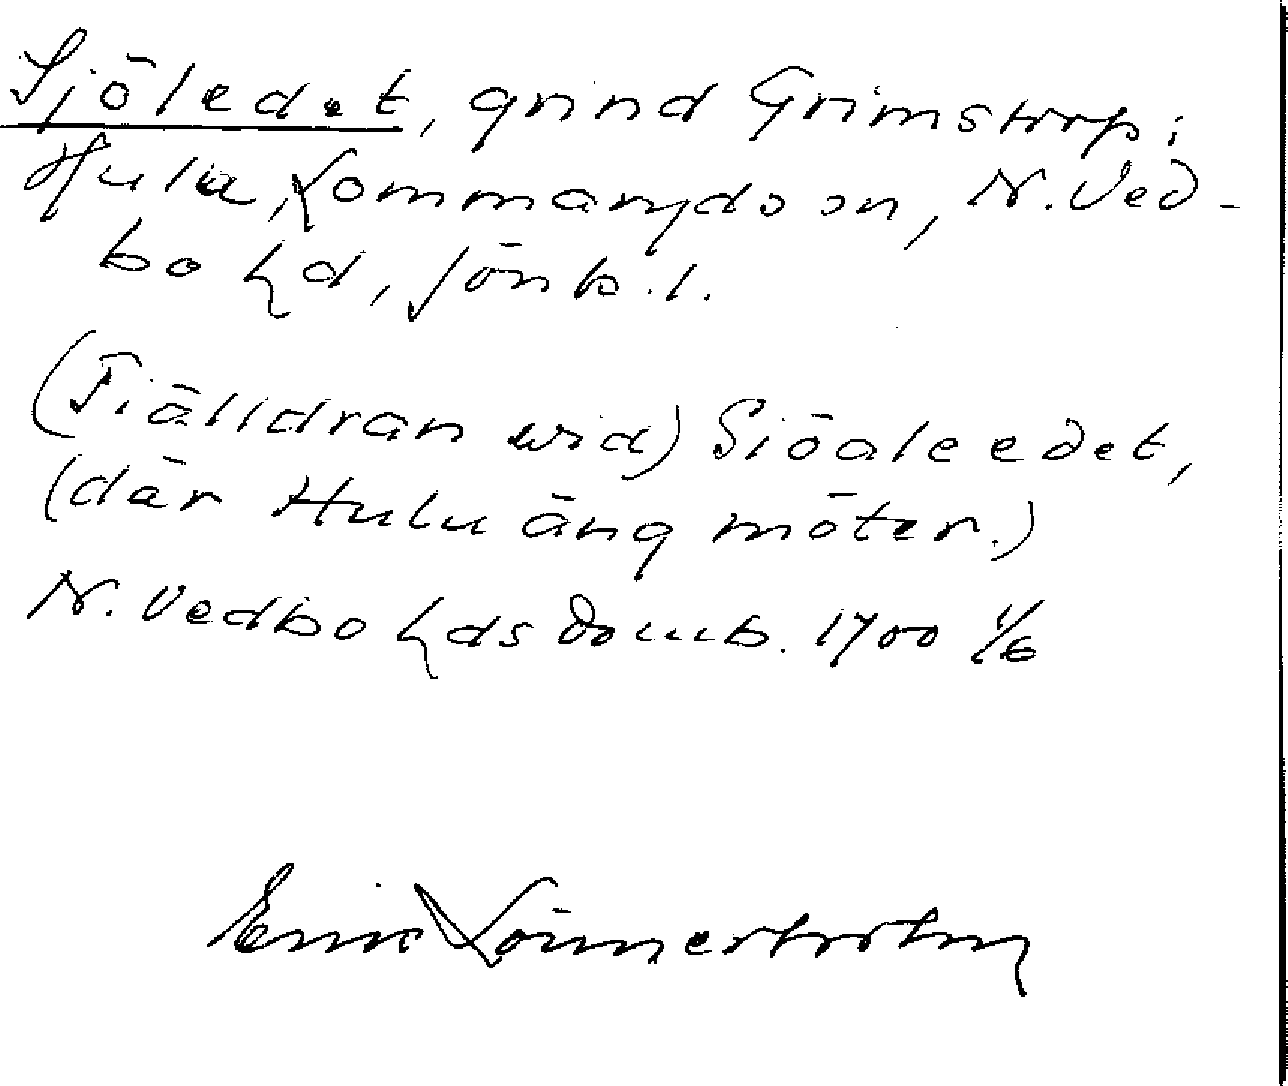 Sjöledet, grind Grimstorp i
Hula, kommanydson, N. Ved-
bo hd, Jönk. l.
(Fiälldran wid) Siöaleedet,
(där Hulu äng möter.)
N. Vedbo hds domb. 1700 1/6
Eric Lönnerholm